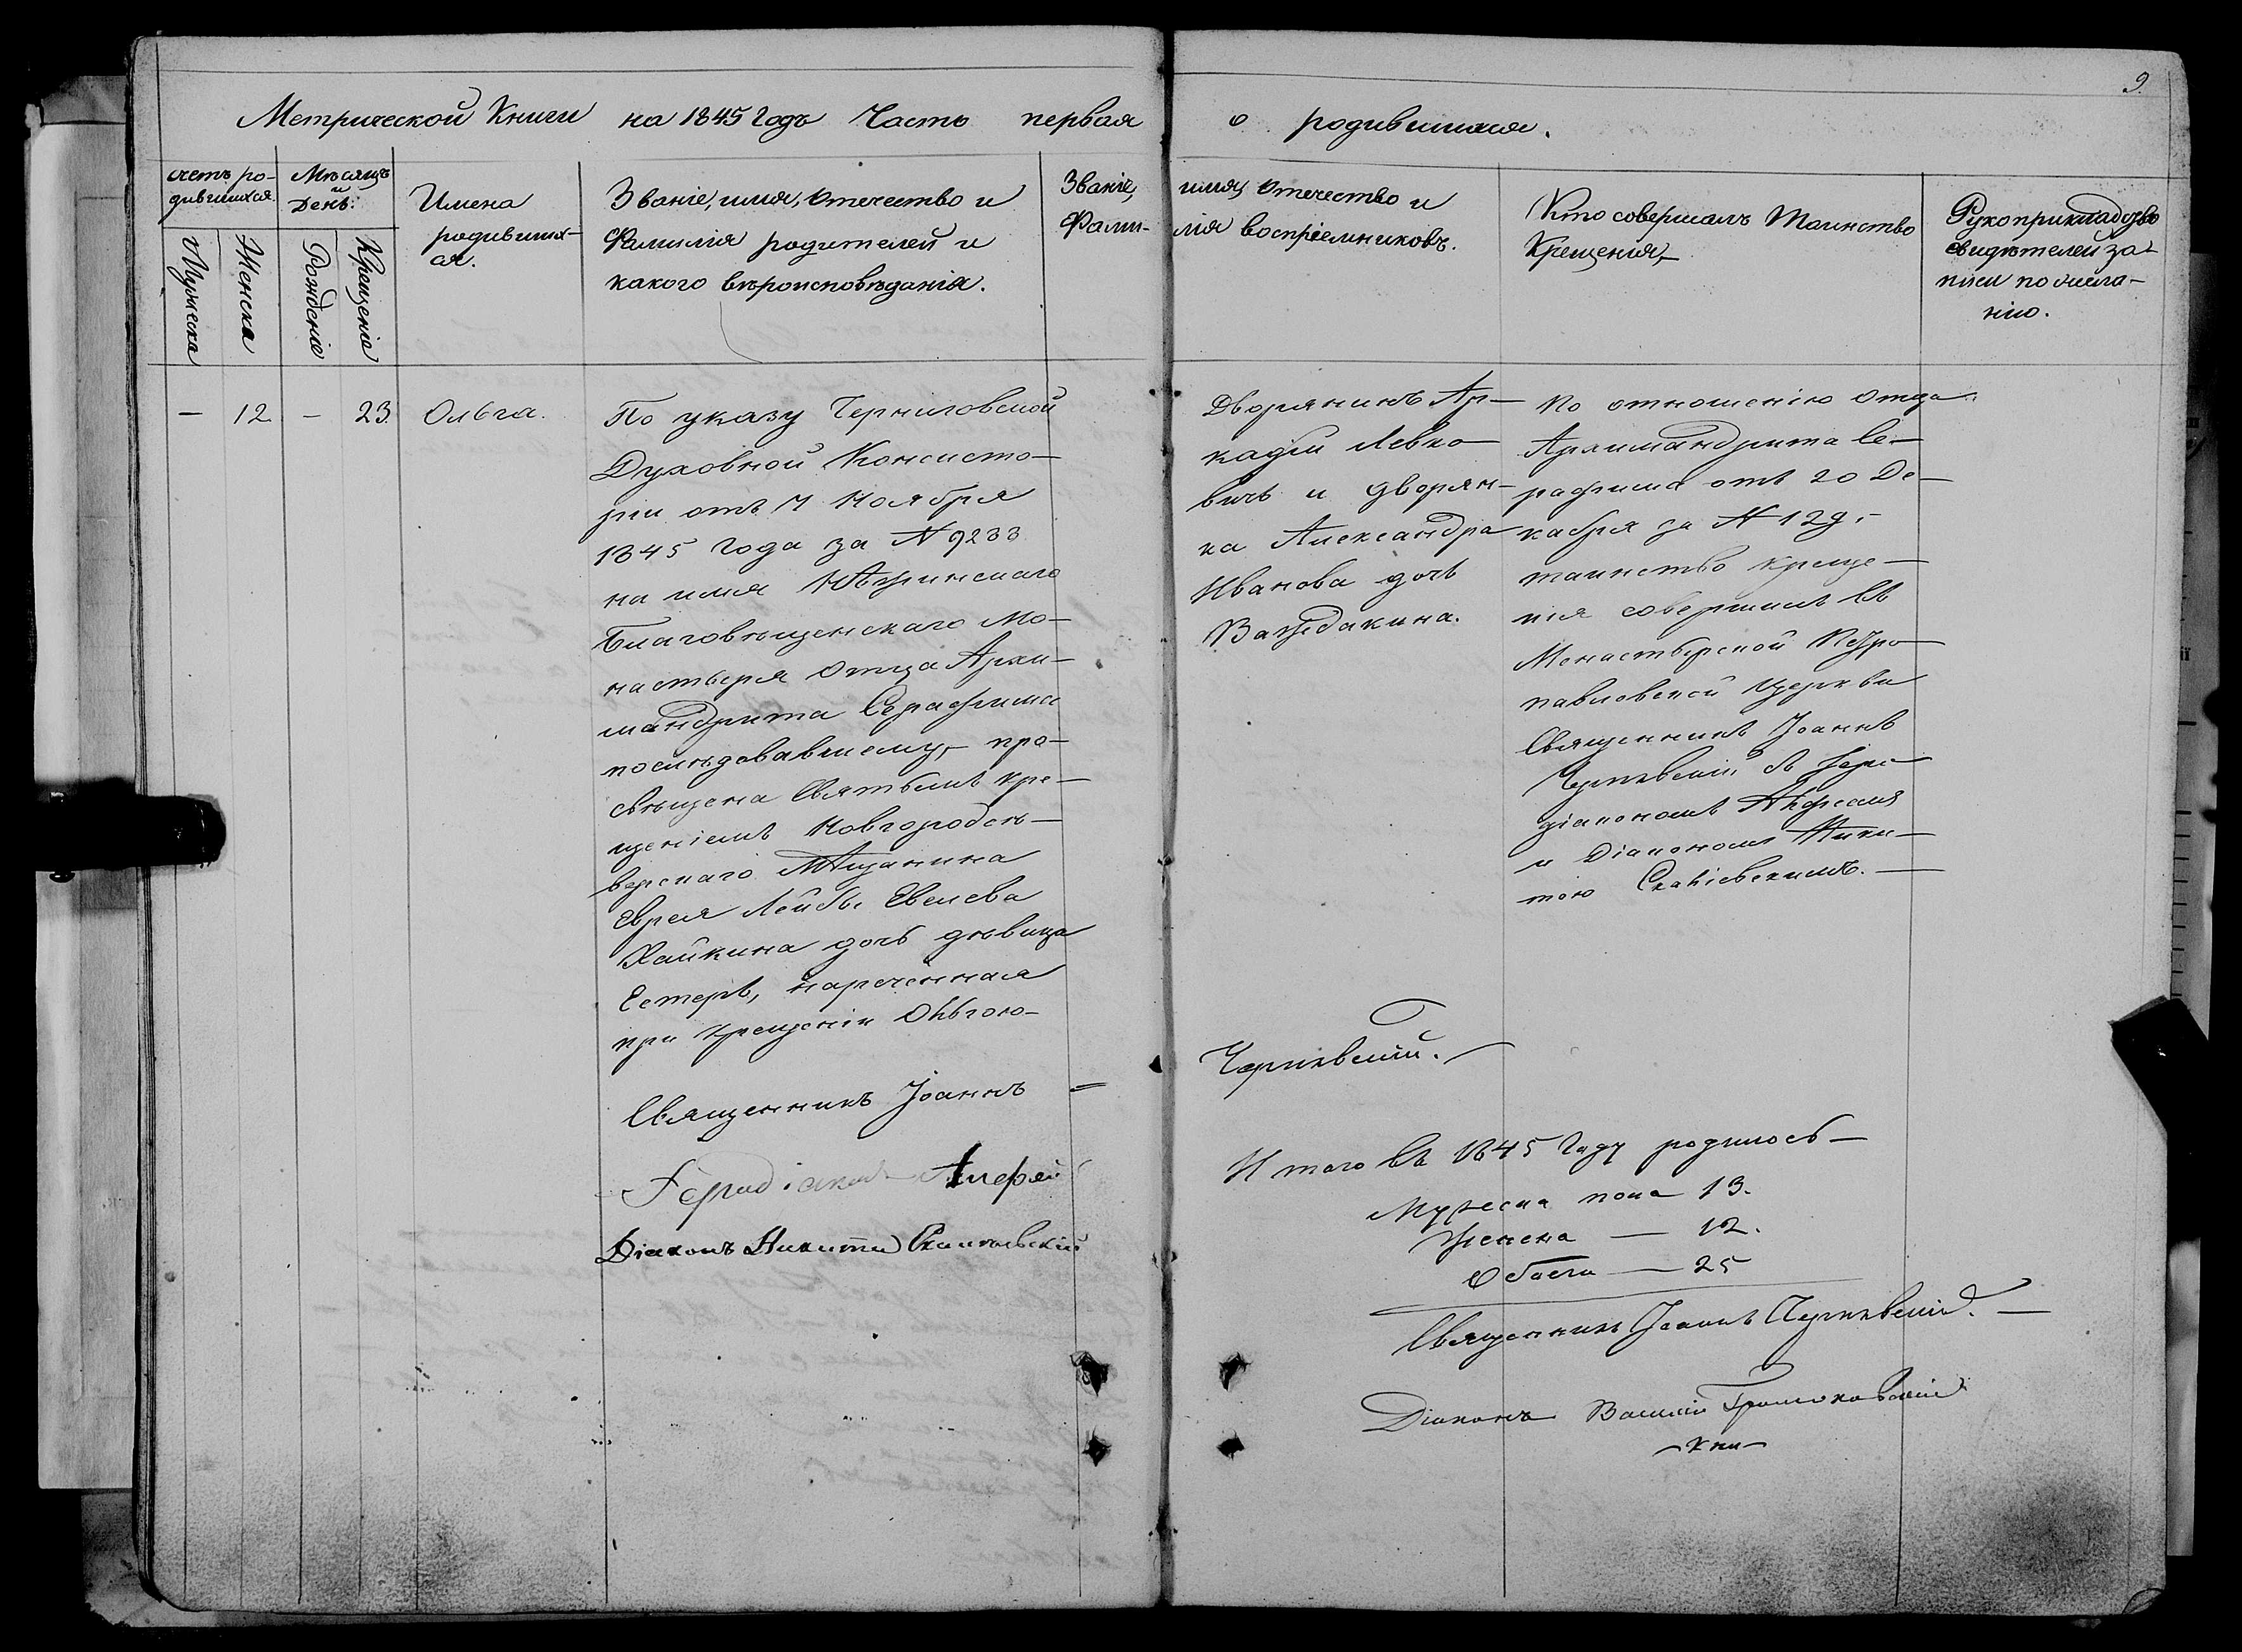 9.
Метрической Книги на 1845 Годъ Часть первая о родившихся.
счетъ ро-
дившихся.
Мѣсяцъ
и
День.
Мужеска
Женска
Рождение
Крещеніе
Имена
родивших-
ся.
Званіе, имя, отечество и
Фамилія родителей и
какого вѣроисповѣданія.
Званіе, имя, отечество и
Фами- лія воспріемниковъ.
Кто совершалъ Таинство
Крещенія,
Рукоприкладство
свидѣтелей за-
писи по жела-
нію.
— 12. — 23. Ольга.
По указу Черниговской
Духовной Консисто-
ріи отъ 7 Ноября
1845 года за N 9233
на имя Нѣжинскаго
Благовѣщенскаго Мо-
настыря Отца Архи-
мандрита Серафима
послѣдовавшему, про-
свѣщена Святымъ Кре-
щеніемъ Новгородсѣ-
верскаго Мѣщанина
Еврея Лейбы Евелева
Хайкина дочь дѣвица
Естеръ, нареченная
при крещеніи Ольгою-
Священникъ Іоаннъ =
Діаконъ Никита
Дворянинъ Ар-
кадій Левко-
вичъ и дворян-
ка Александра
Иванова дочь
Важдакина.
По отношенію Отца
Архимандрита Се-
рафима отъ 20 Де-
кабря за N 129.
таинство креще-
нія совершилъ въ
Монастырской Петро-
павловской Церкви
Священникъ Іоаннъ
съ Іеро-
діакономъ
и Діакономъ Ники-
тою
Итого въ 1845 Году родилось-
Мужеска пола 13.
Женска — 12.
Обоего — 25
Священникъ Іоаннъ
Діаконъ Василій